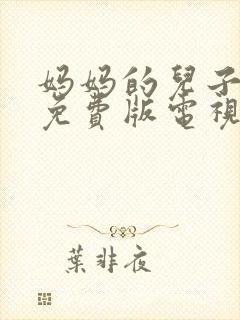 妈妈的兒子
免費版電視
葉非夜